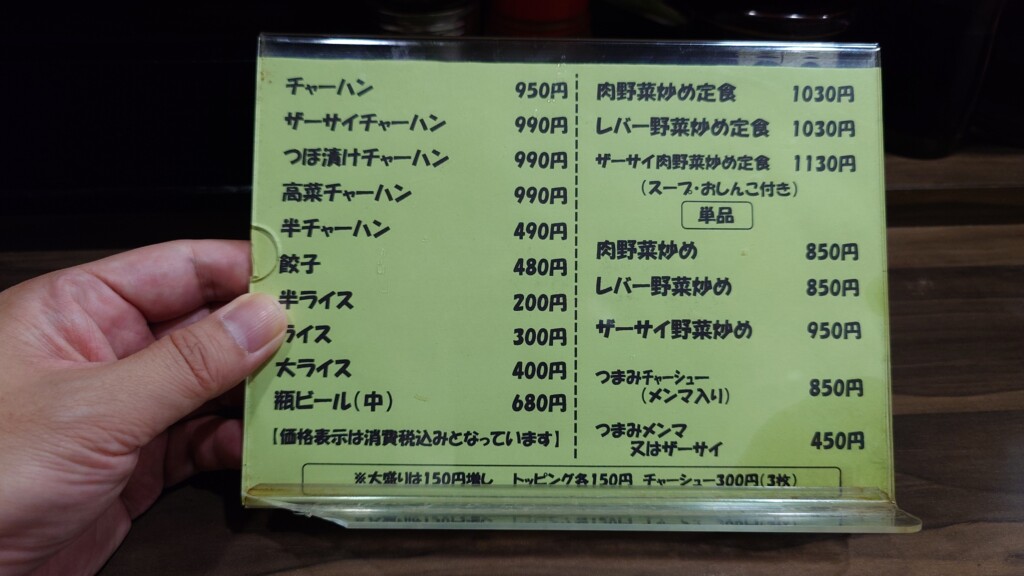 チャーハン 950円
ザーサイチャーハン 990円
つぼ漬けチャーハン 990円
高菜チャーハン 990円
半チャーハン 490円
餃子 480円
半ライス 200円
ライス 300円
大ライス 400円
瓶ビール(中) 680円
【価格表示は消費税込みとなっています】
肉野菜炒め定食 1030円
レバー野菜炒め定食 1030円
ザーサイ肉野菜炒め定食 1130円
(スープ・おしんこ付き)
単品
肉野菜炒め 850円
レバー野菜炒め 850円
ザーサイ野菜炒め 950円
つまみチャーシュー
(メンマ入り) 850円
つまみメンマ
又はザーサイ 450円
※大盛りは150円増し トッピング各150円 チャーシュー300円(3枚)